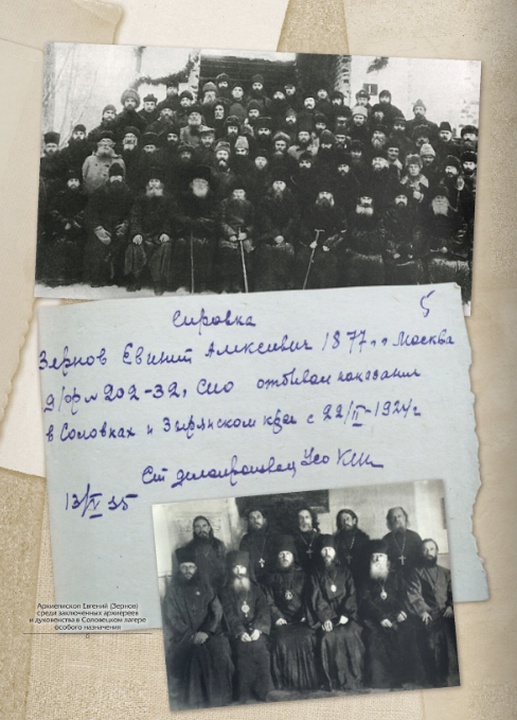 5
Справка
Зернов Евгений Алексеевич 1877 г. Москва
д/ф № 202-32, СПО отбывал наказание
в Соловках и Зырянском крае с 22/II-1924 г
Ст делопроизвод
13/V 35
Архиепископ Евгений (Зернов)
среди заключенных архиереев
и духовенства в Соловецком лагере
особого назначения